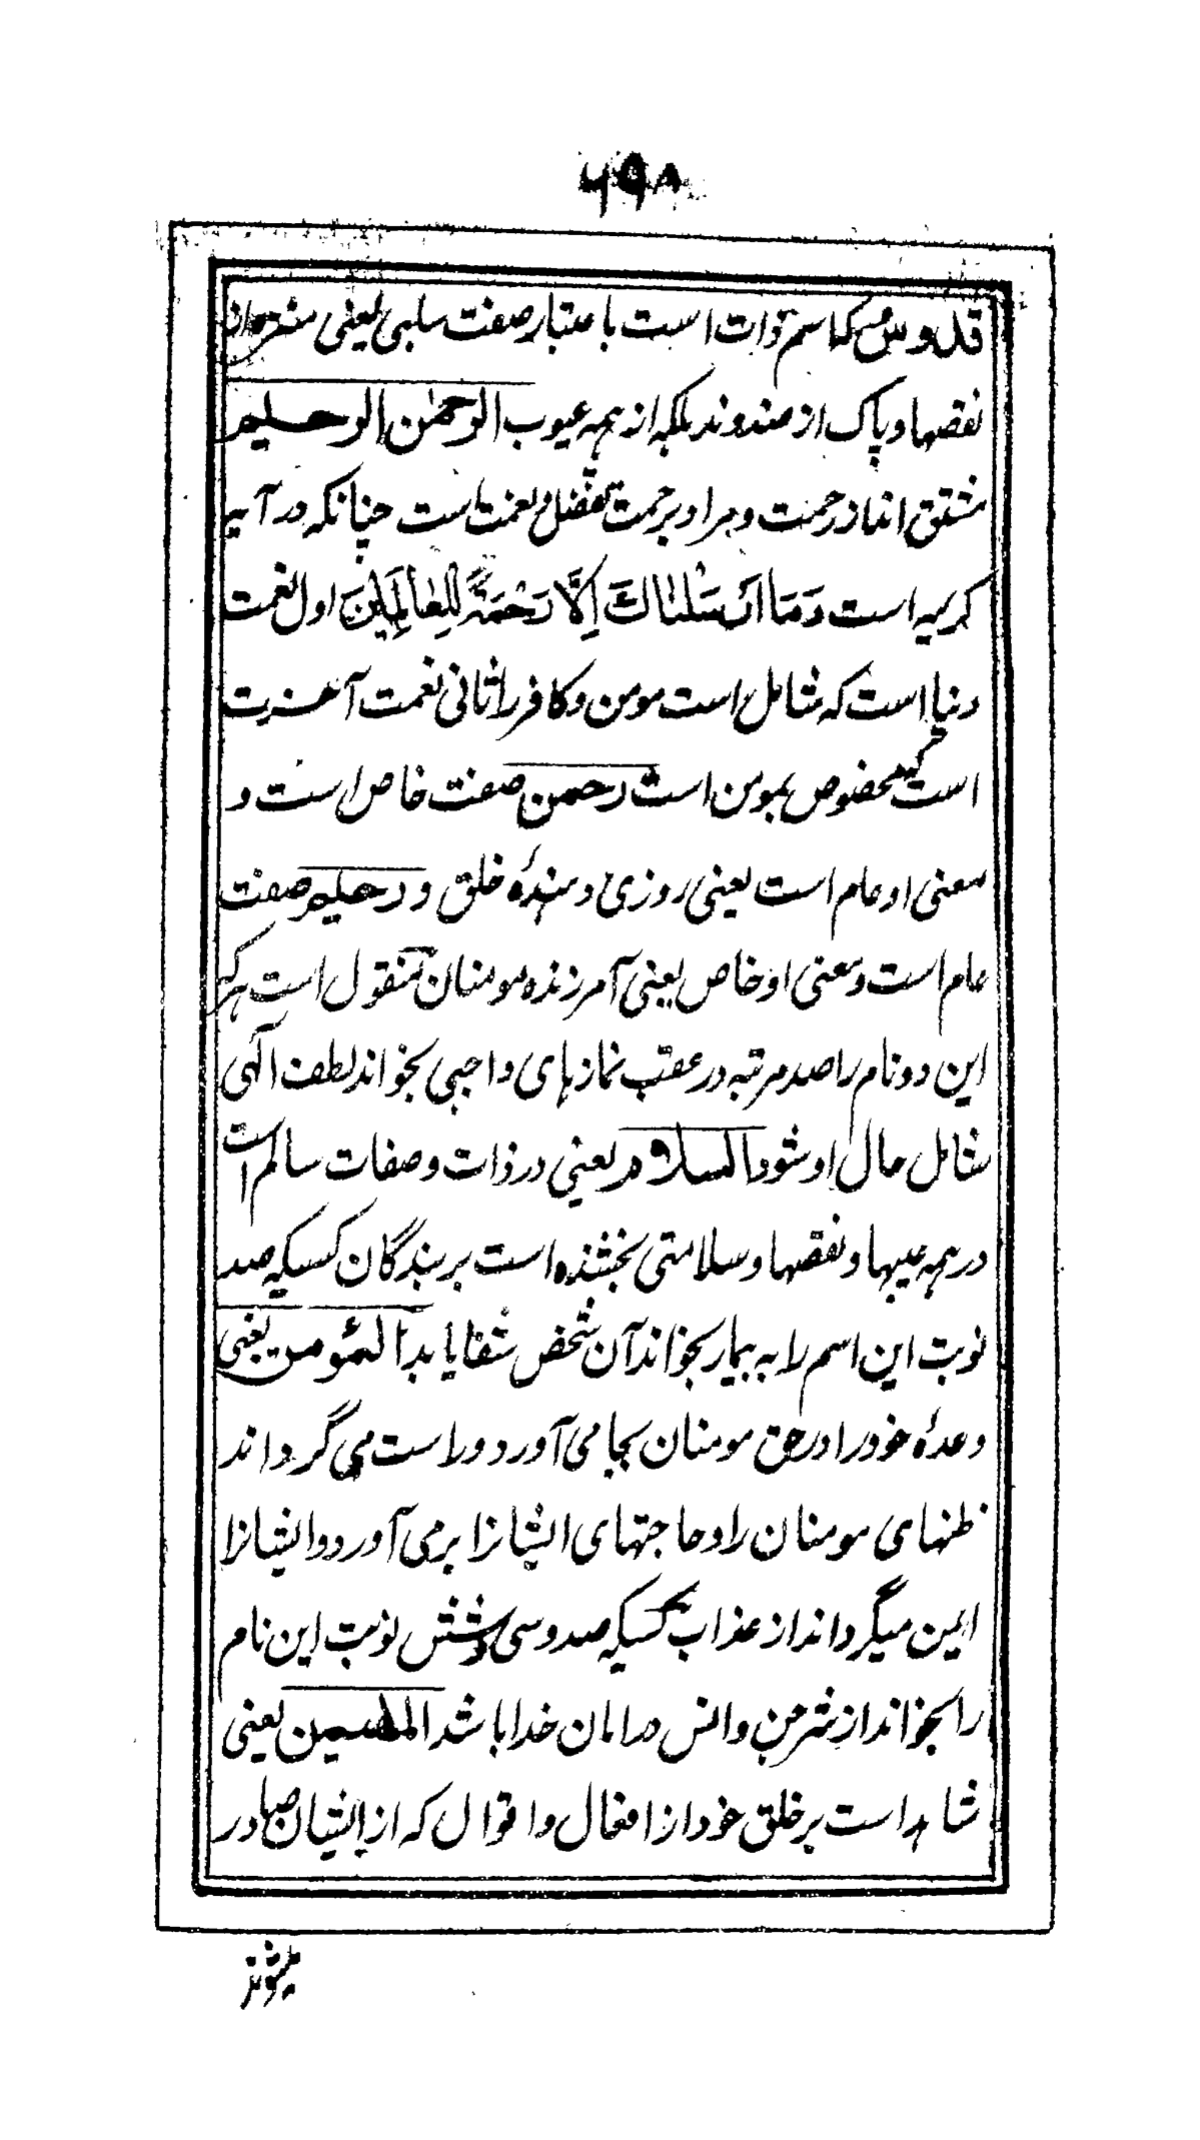 ۶۹۸
قدوس که اسم ذات است باعتبار صفت سلبی یعنی منزه از
نقصها و پاک از ضد و ند بلکه از همه عیوب الرحمٰن الرحیم
مشتق اند از رحمت و مراد برحمت تفضل و نعمت است چنانکه در آیه
کریمه است وَمَا اَرْسَلْنَاكَ اِلَّا رَحْمَةً لِلْعَالَمِیْنَ اول نعمت
دنیا است که شامل است مومن و کافر را ثانی نعمت آخرت
است که مخصوص بمومن است رحمن صفت خاص است و
معنی او عام است یعنی روزی دهندهٔ خلق و رحیم صفت
عام است و معنی او خاص یعنی آمرزنده مومنان منقول است هر که
این دو نام را صد مرتبه در عقب نمازهای واجبی بخواند لطف الٰهی
شامل حال او شود السلام یعنی در ذات و صفات سالم است
در همه عیبها و نقصها و سلامتی بخشنده است بر بندگان کسیکه صد
نوبت این اسم را به بیمار بخواند آن شخص شفا یابد المؤمن یعنی
وعدهٔ خود را در حق مومنان بجا می آورد و راست می گرداند
ظنهای مومنان را و حاجتهای ایشانرا برمی آورد و ایشانرا
ایمن میگرداند از عذاب کسیکه صد و سی و شش نوبت این نام
را بخواند از شر جن و انس در امان خدا باشد المهیمن یعنی
شاهد است بر خلق خود از افعال و اقوال که از ایشان صادر
میشوند